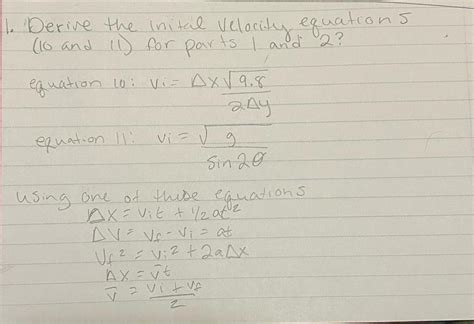 1. Derive the initail velocity equations
(10 and 11) for parts 1 and 2?
equation 10: Vi = Δx√9.8
2Δy
equation 11: Vi = √g
sin2θ
using one of these equations
Δx = Vit + 1/2at²
ΔV = Vf - Vi = at
Vf² = Vi² + 2aΔx
Δx = v̄t
v̄ = Vi + Vf
2